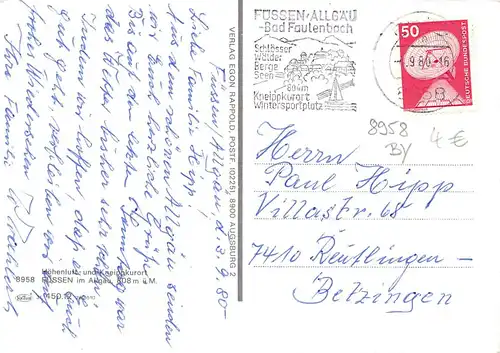 Füssen/Allgäu, d. 3.9.80-
Liebe Familie Hipp!
Aus dem schönen Allgäu senden
wir Ihnen herzliche Grüße.
Bis auf den letzten Sonntag war
das Wetter bisher sehr schön.
Indem wir hoffen, daß es Ihnen auch
gut geht, verbleiben wir bis auf
frohes Wiedersehen
Ihre Familie
VERLAG EGON RAPPOLD, POSTF. 102251, 8900 AUGSBURG 2
Höhenluft- und Kneippkurort
8958 FÜSSEN im Allgäu, 808 m ü.M.
FÜSSEN·ALLGÄU
-Bad Faulenbach
Schlösser
Wälder
Berge
Seen
804m
Kneippkurort
Wintersportplatz
9.80-16
50
DEUTSCHE BUNDESPOST
8958
BY
4 €
Herrn
Paul Hipp
Villastr. 68
7410 Reutlingen-
Betzingen